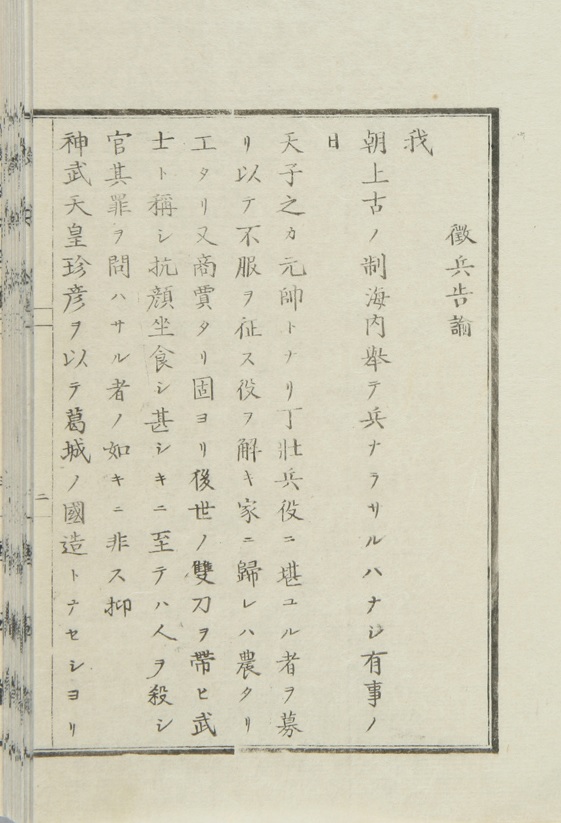 徴兵告諭
我
朝上古ノ制海内舉テ兵ナラサルハナシ有事ノ
日
天子之カ元帥トナリ丁壯兵役ニ堪ユル者ヲ募
リ以テ不服ヲ征ス役ヲ解キ家ニ歸レハ農タリ
工タリ又商賈タリ固ヨリ後世ノ雙刀ヲ帶ヒ武
士ト稱シ抗顔坐食シ甚シキニ至テハ人ヲ殺シ
官其罪ヲ問ハサル者ノ如キニ非ス抑
神武天皇珍彦ヲ以テ葛城ノ國造トナセシヨリ
二